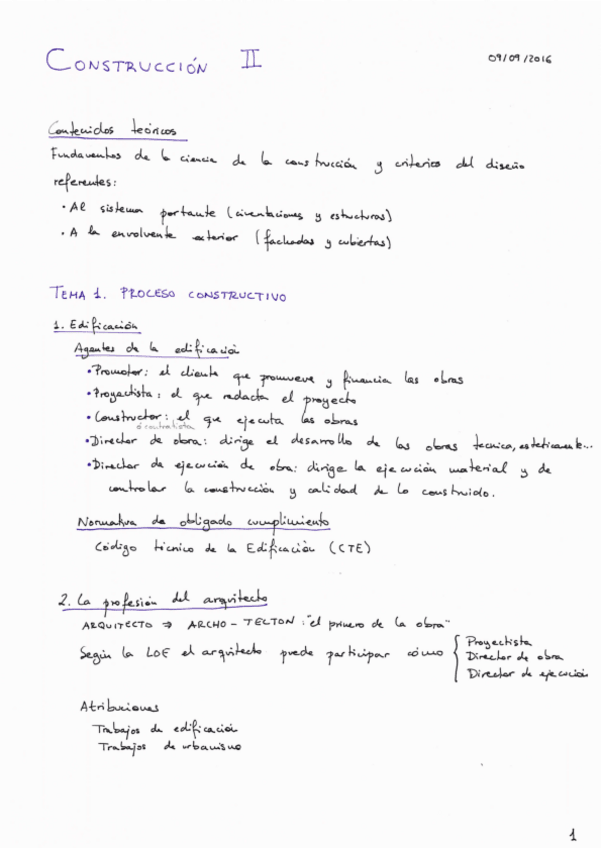 CONSTRUCCIÓN II
09/09/2016
Contenidos teóricos
Fundamentos de la ciencia de la construcción y criterios del diseño
referentes:
· Al sistema portante (cimentaciones y estructuras)
· A la envolvente exterior (fachadas y cubiertas)
TEMA 1. PROCESO CONSTRUCTIVO
1. Edificación
Agentes de la edificación
• Promotor: el cliente que promueve y financia las obras
• Proyectista: el que redacta el proyecto
• Constructor: el que ejecuta las obras
ó contratista
• Director de obra: dirige el desarrollo de las obras tecnica, esteticamente...
• Director de ejecución de obra: dirige la ejecución material y de
controlar la construcción y calidad de lo construido.
Normativa de obligado cumplimiento
Código técnico de la Edificación (CTE)
2. La profesión del arquitecto
ARQUITECTO ⇒ ARCHO - TECTON : "el primero de la obra"
Según la LOE el arquitecto puede participar cómo { Proyectista
Director de obra
Director de ejecución
Atribuciones
Trabajos de edificación
Trabajos de urbanismo
1